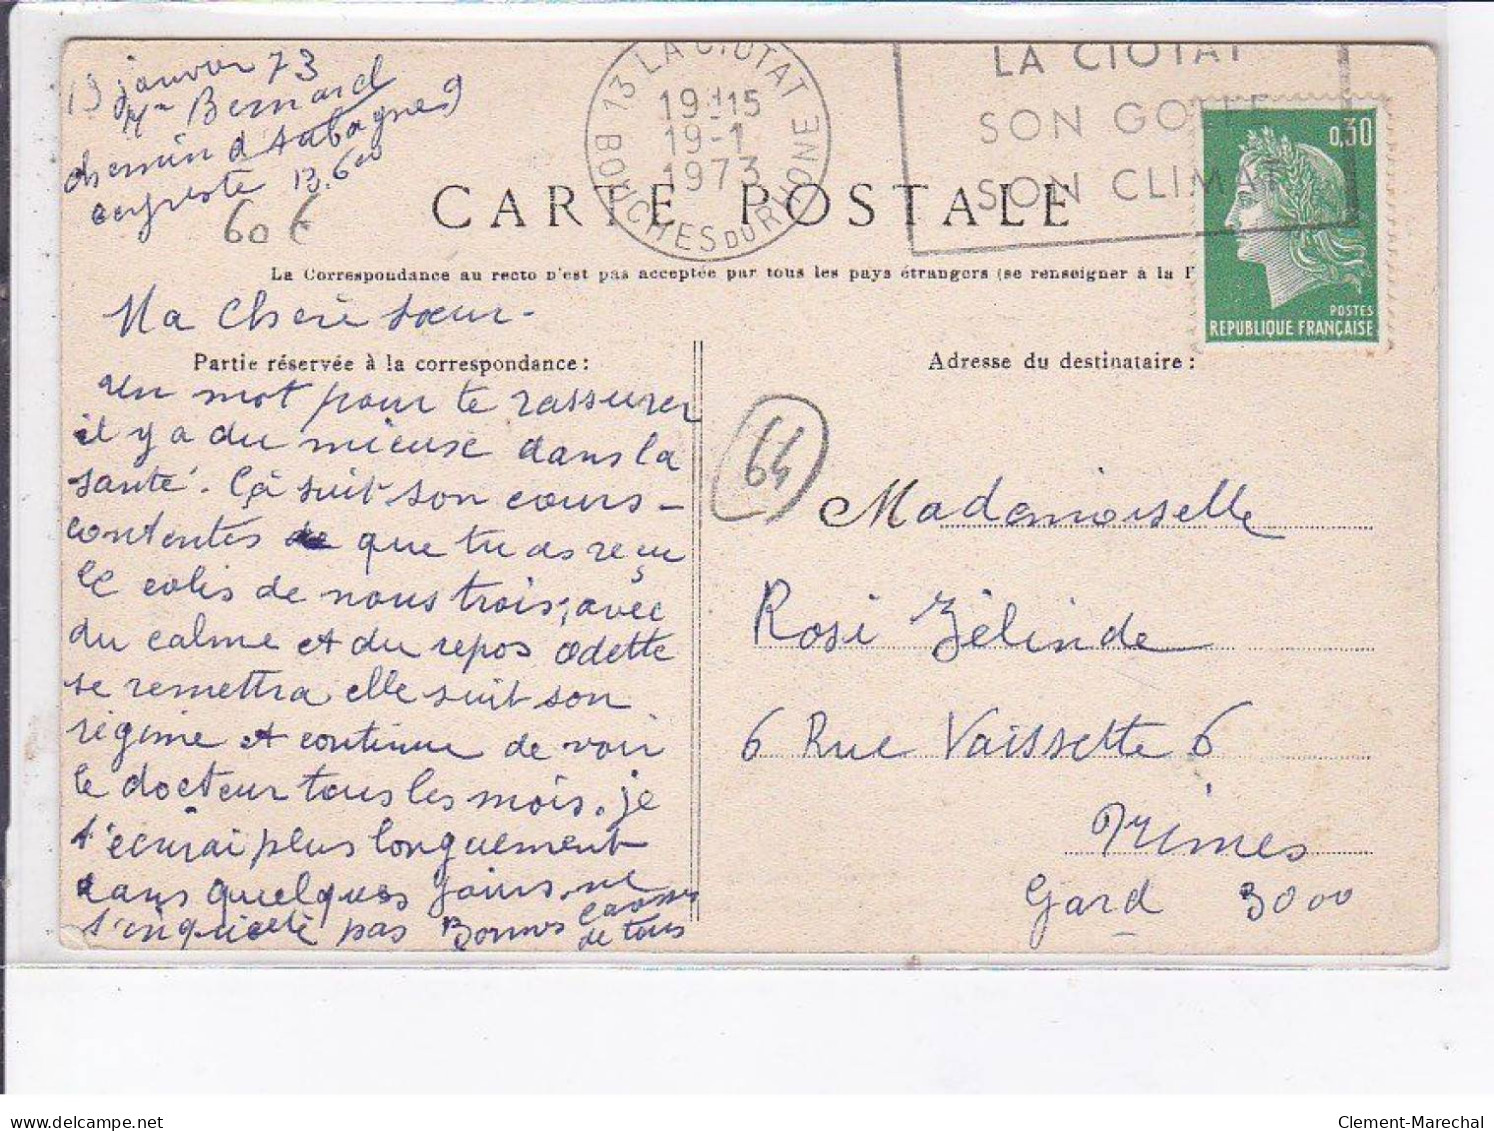 19 janvier 73
Mme Bernard
chemin d'Aubagne
ceyreste 13.600
60 €
13 LA CIOTAT
19H15
19-1
1973
BOUCHES DU RHONE
LA CIOTAT
SON GOLFE
SON CLIMAT
0,30
POSTES
REPUBLIQUE FRANÇAISE
CARTE POSTALE
La Correspondance au recto n'est pas acceptée par tous les pays étrangers (se renseigner à la P
Ma Chère sœur -
Partie réservée à la correspondance :
un mot pour te rassurer
il y a du mieuse dans la
santé. Çà suit son cours -
contentes que tu as reçu
le colis de nous trois, avec
du calme et du repos Odette
se remettra elle suit son
régime et continue de voir
le docteur tous les mois. je
t'écrirai plus longuement
dans quelques jours. ne
t'inquiete pas Bonnes
de tous
Adresse du destinataire :
64
Mademoiselle
Rosi Zélinde
6 Rue Vaissette 6
Nimes
Gard 3000
Clement-Marechal
delcampe.net